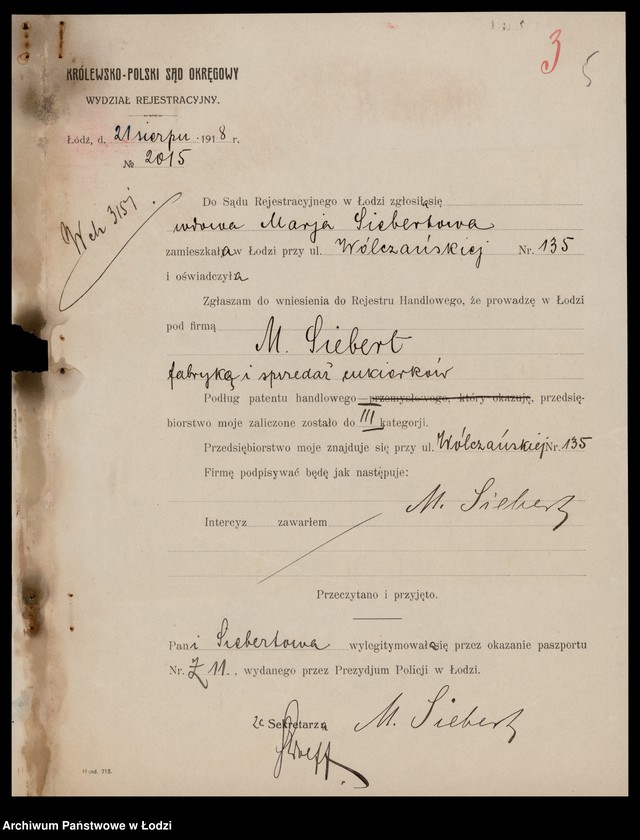 3
5
KRÓLEWSKO-POLSKI SĄD OKRĘGOWY
WYDZIAŁ REJESTRACYJNY.
Łódź, d. 21 sierpu 1918 r.
№ 2015
Do Sądu Rejestracyjnego w Łodzi zgłosiła się
wdowa Marja Siebertowa
zamieszkała w Łodzi przy ul. Wólczańskiej Nr. 135
i oświadczyła
Zgłaszam do wniesienia do Rejestru Handlowego, że prowadzę w Łodzi
pod firmą
M. Siebert
fabrykę i sprzedaż cukierków
Podług patentu handlowego przemysłowego, który okazuję, przedsię-
biorstwo moje zaliczone zostało do III kategorji.
Przedsiębiorstwo moje znajduje się przy ul. Wólczańskiej Nr. 135
Firmę podpisywać będę jak następuje:
M. Siebert
Intercyz zawarłem
Przeczytano i przyjęto.
Pani Siebertowa wylegitymowała się przez okazanie paszportu
Nr. Z 11., wydanego przez Prezydjum Policji w Łodzi.
Sekretarza M. Siebert
Hand. 712.
Archiwum Państwowe w Łodzi